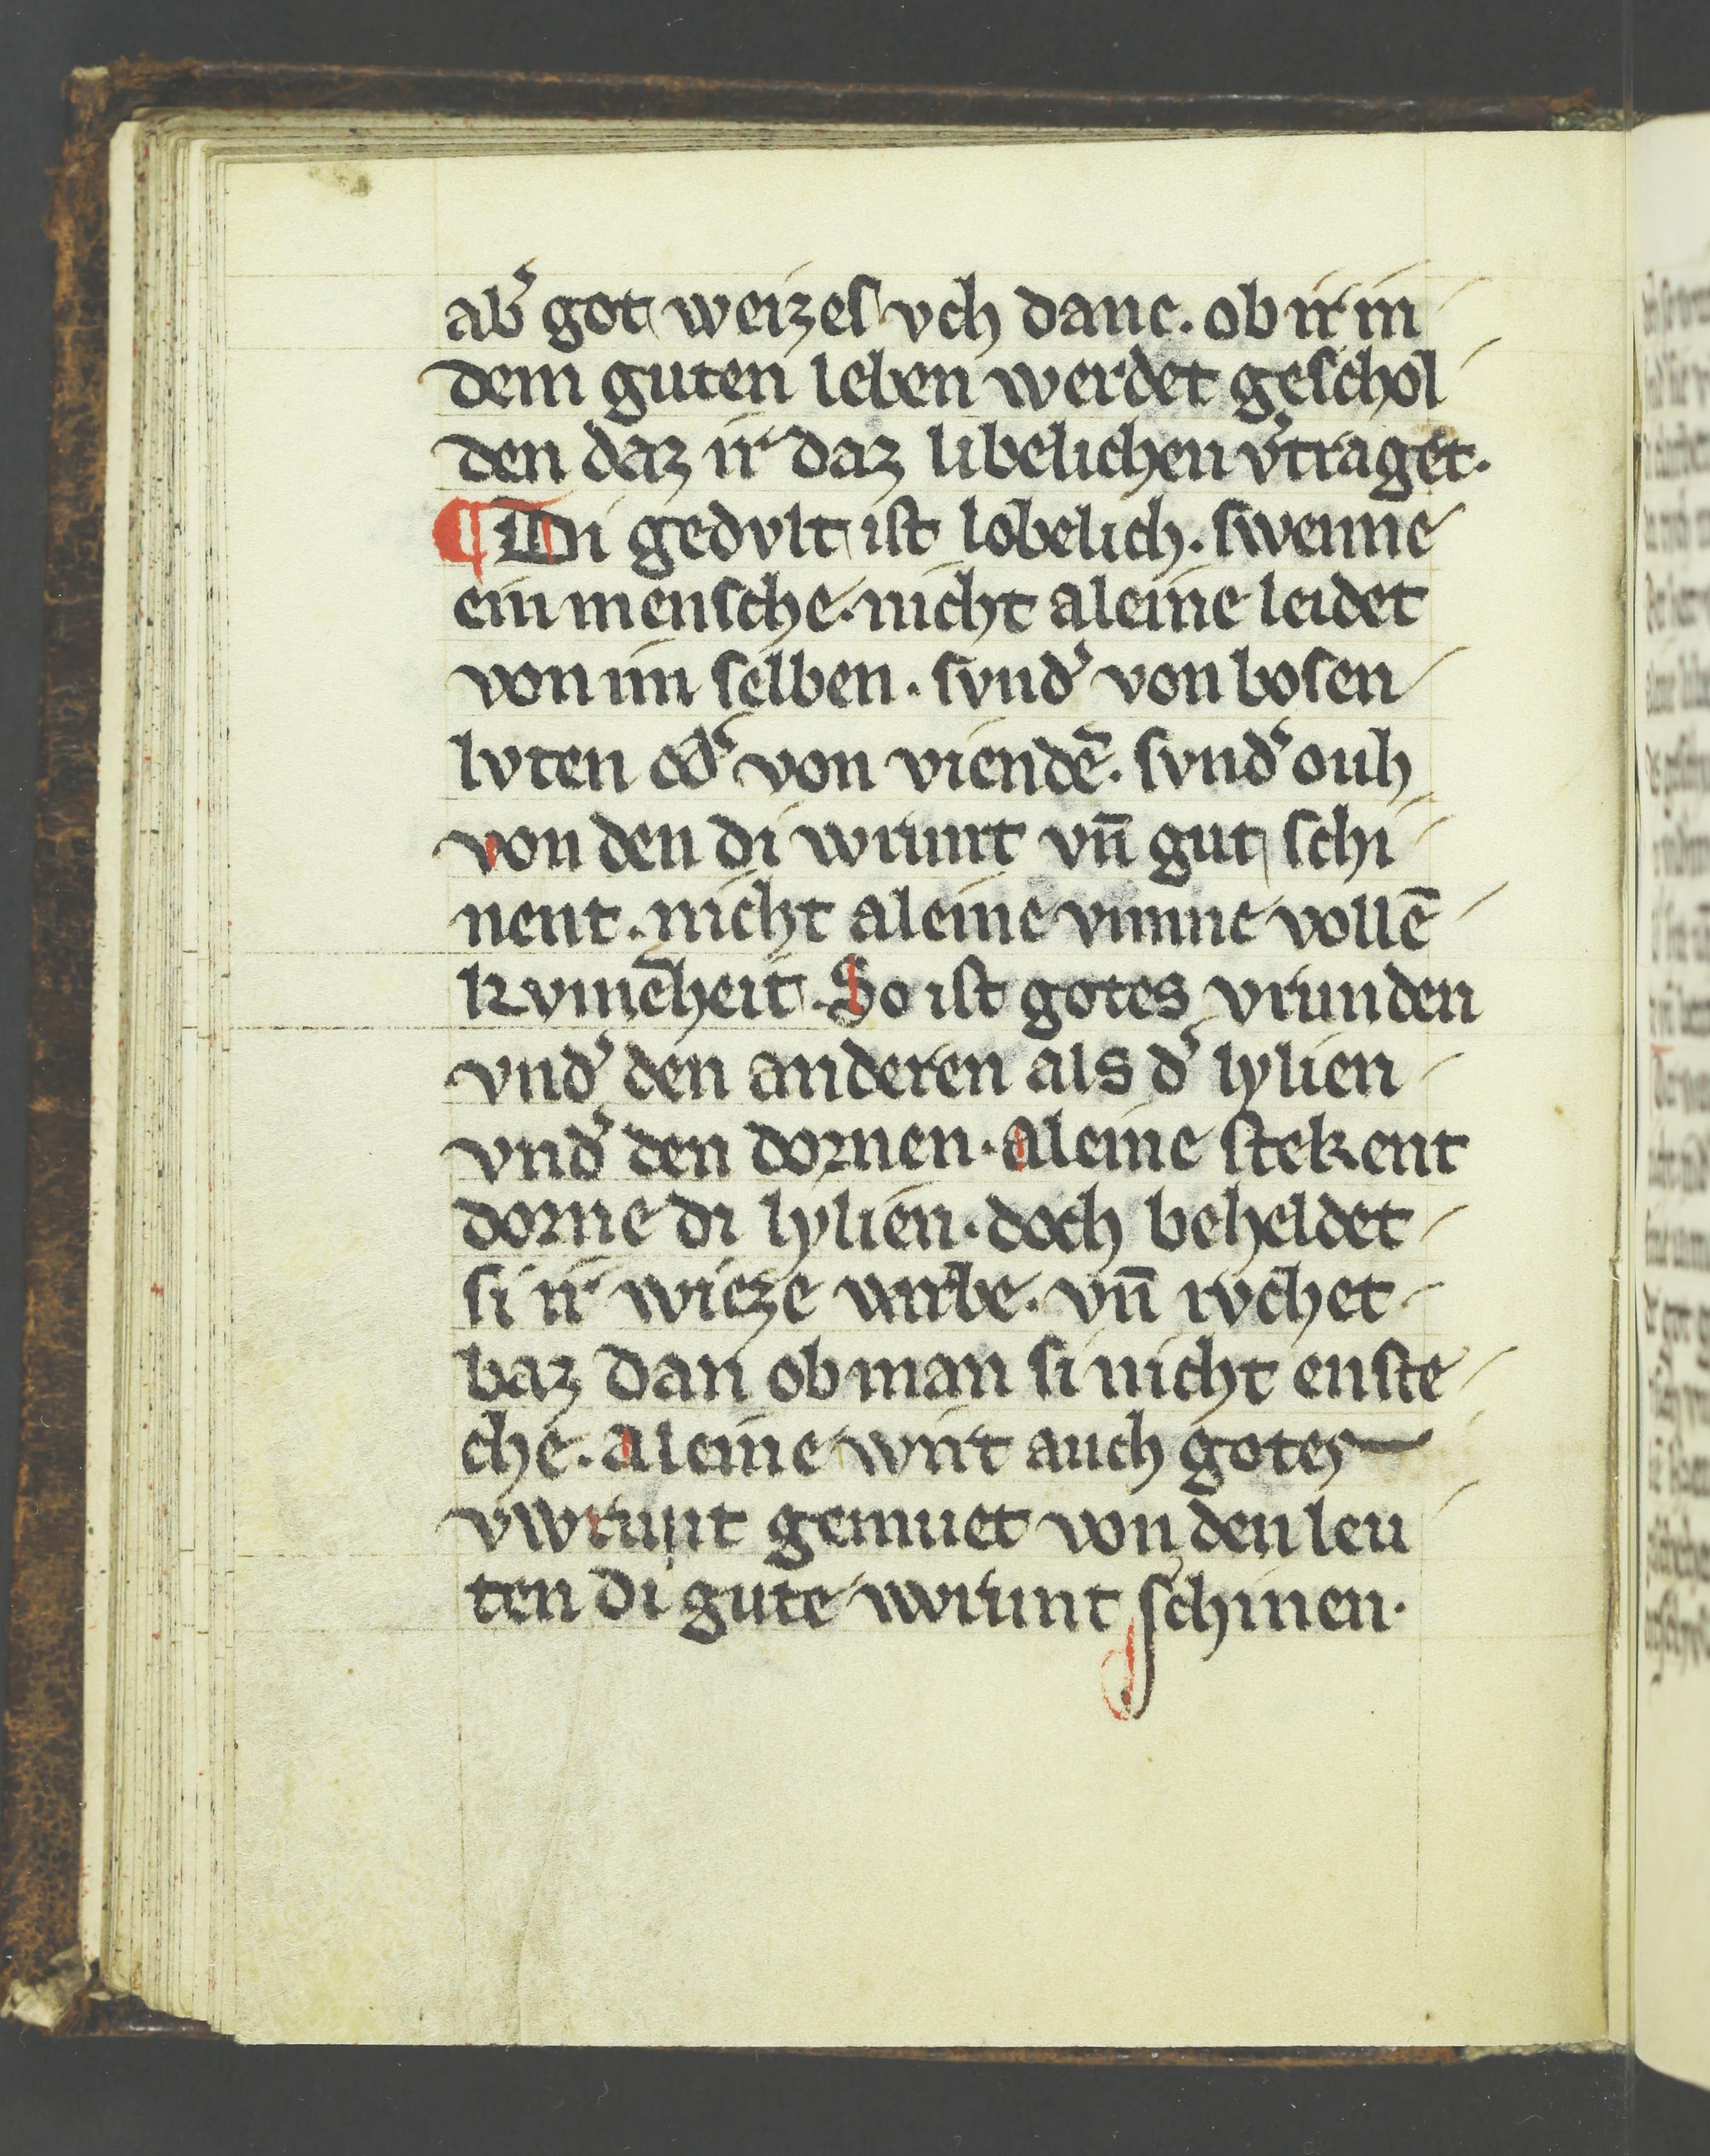 ab͛ got weizes vch danc. ob ir in
dem guten leben werdet geschol
den daz ir daz libelichen v͛traget.
¶ Di gedvlt ist lobelich. swenne
ein mensche. nicht aleine leidet
von im selben. svnd͛ von bosen
lvten od͛ von viendē. svnd͛ ouh
von den di vriunt vn̄ gut schi
nent. nicht aleine vnnne vollē
kvmēheit. So ist gotes vrunden
vnd͛ den anderen als d͛ lylien
vnd͛ den dornen. aleine stekent
dorne di lylien. doch beheldet
si ir wieze varbe. vn̄ rvchet
baz dan ob man si nicht enste
che. aleine wirt auch gotes
vwriunt gemuet von den leu
ten di gute wriunt schinen.